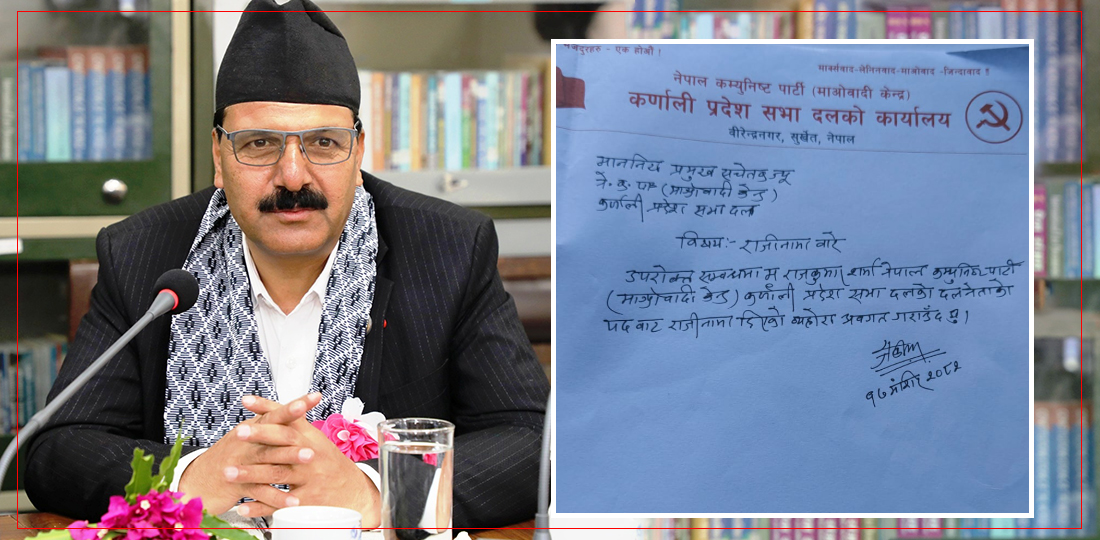 मजदुरहरु - एक होऔं !
मार्क्सवाद-लेनिनवाद-माओवाद -जिन्दावाद !
नेपाल कम्युनिष्ट पार्टी (माओवादी केन्द्र)
कर्णाली प्रदेश सभा दलको कार्यालय
वीरेन्द्रनगर, सुर्खेत, नेपाल
माननिय प्रमुख सचेतक ज्यू
ने. क. पा (माओवादी केन्द्र)
कर्णाली प्रदेश सभा दल
विषय:- राजीनामा बारे
उपरोक्त सम्बन्धमा म राजकुमार शर्मा नेपाल कम्युनिष्ट पार्टी
(माओवादी केन्द्र) कर्णाली प्रदेश सभा दलको दलनेताको
पद बाट राजीनामा दिएको व्यहोरा अवगत गराउँद छु।
१७ मंसिर २०८२